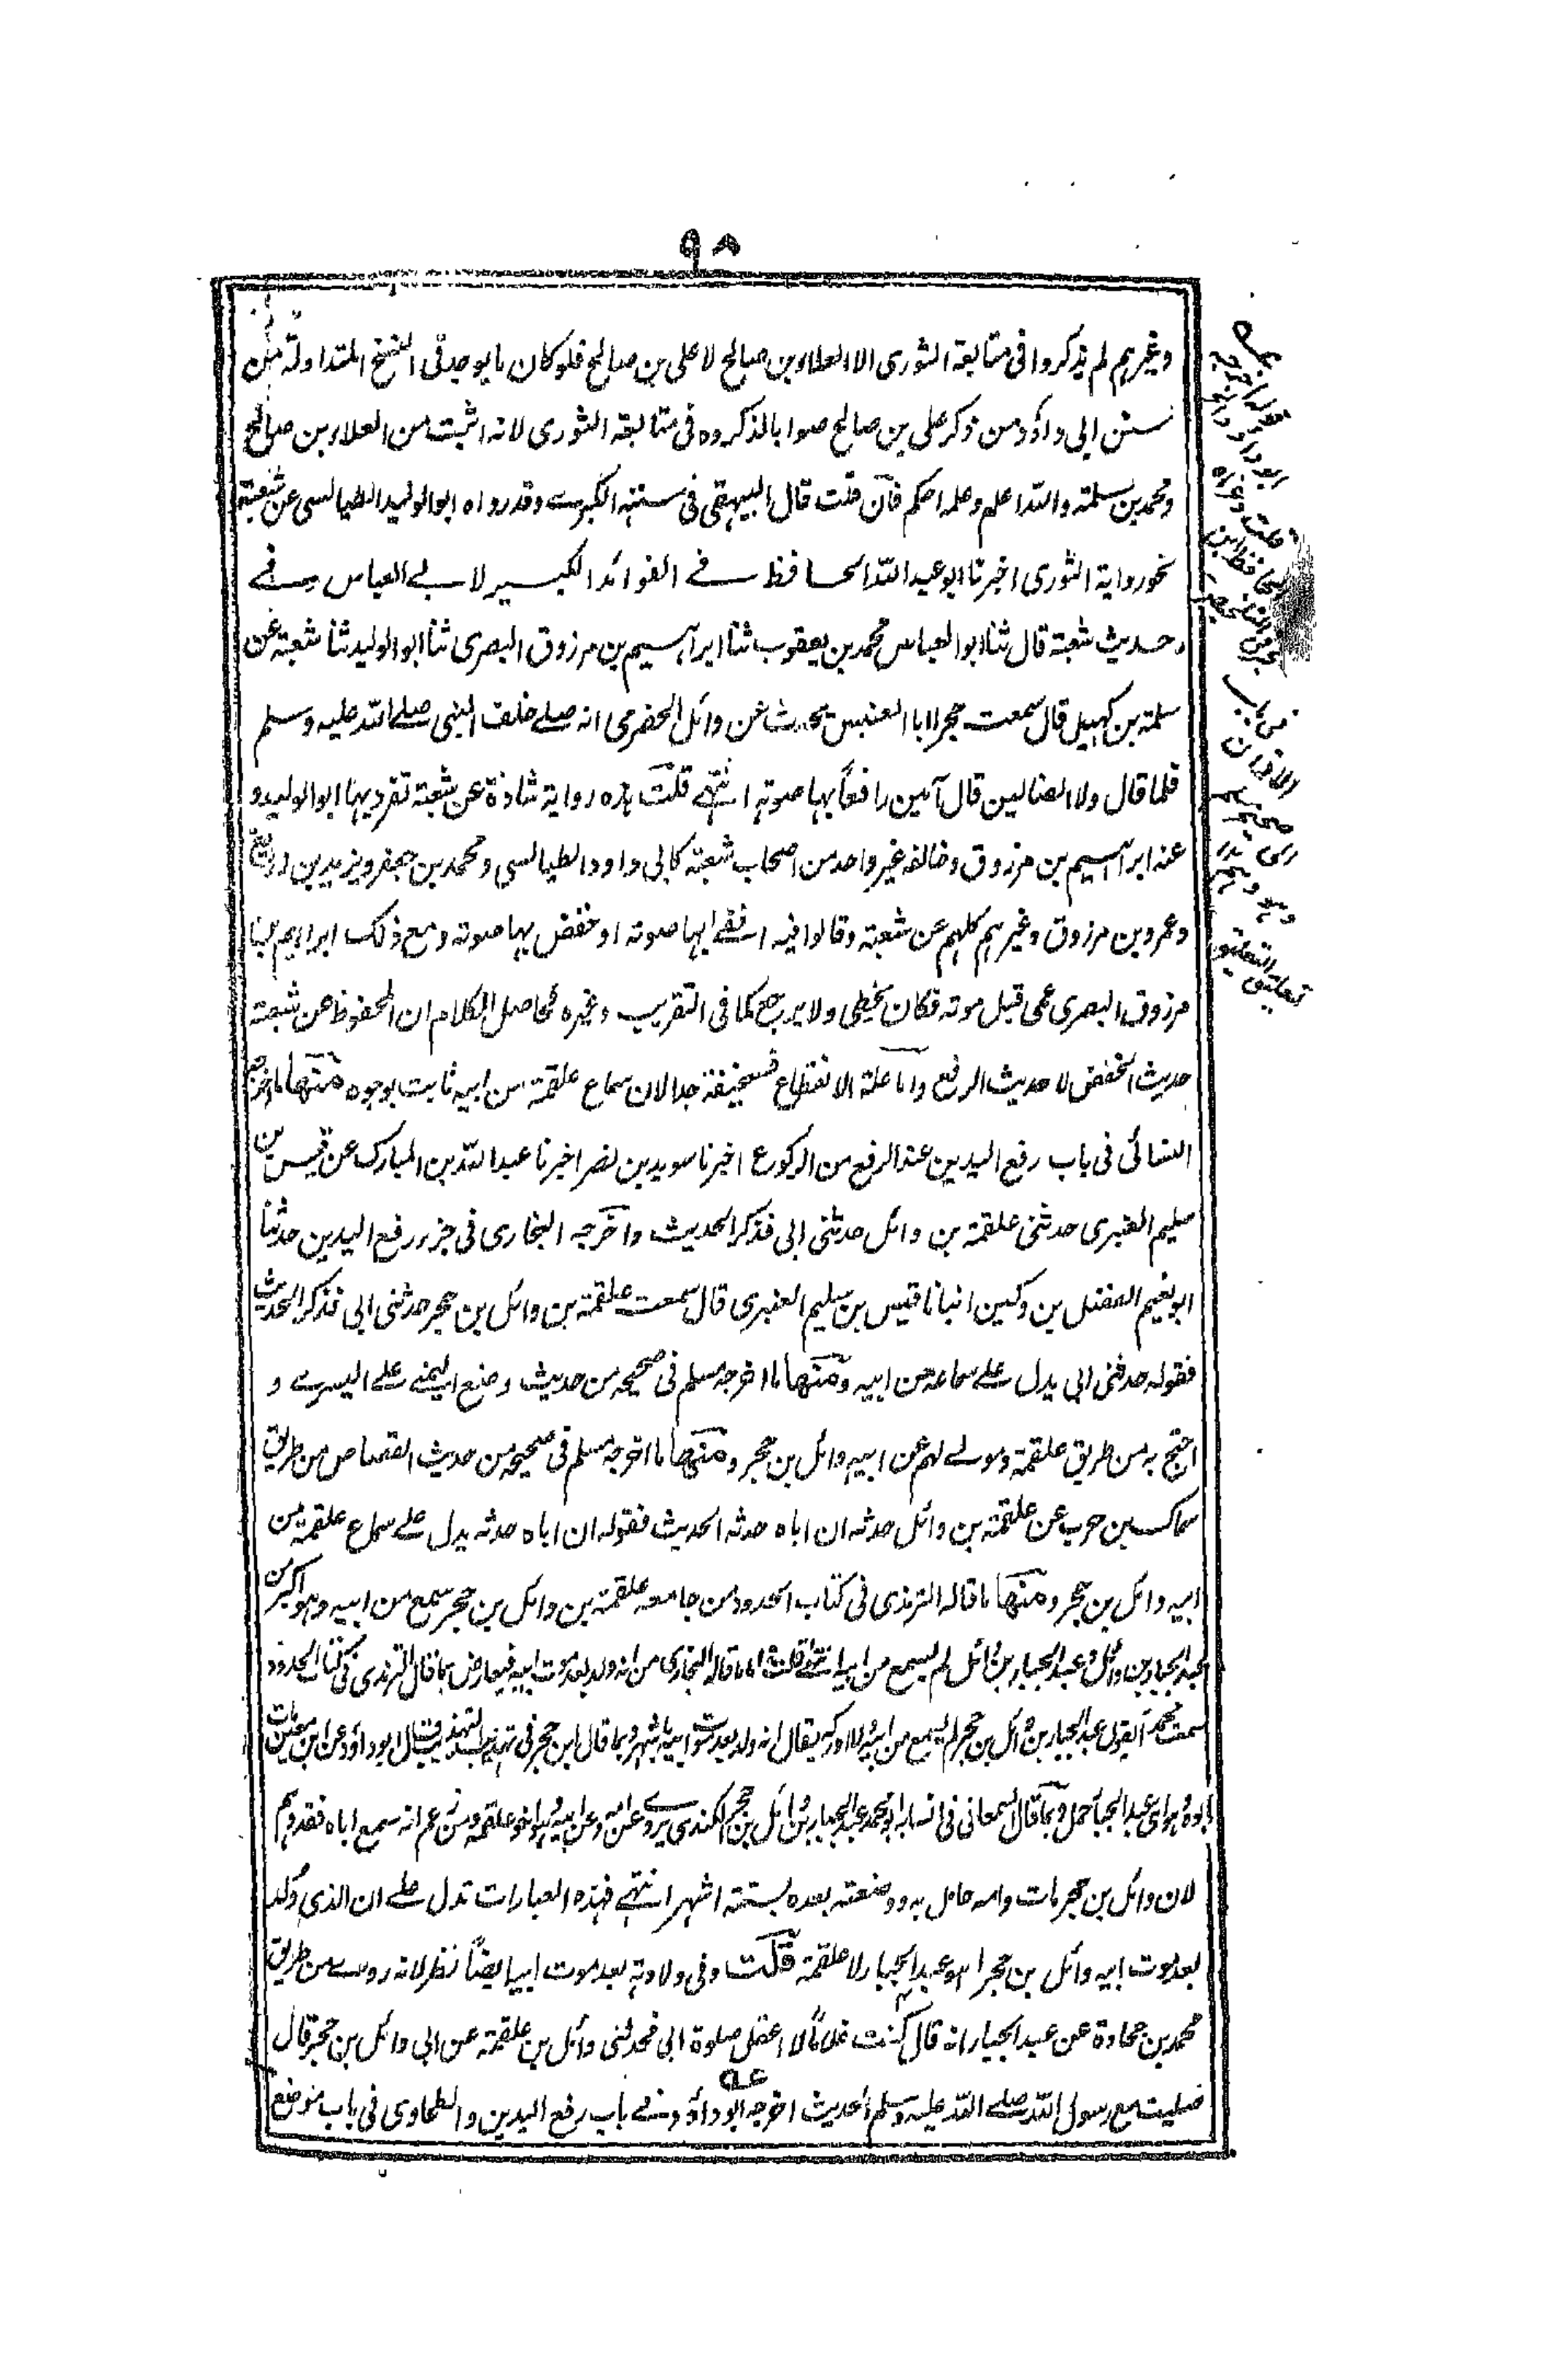 ٩٨
وغيرهم لم يذكروا في متابعة الثوري الا العلاء بن صالح لا علي بن صالح فلو كان ما يوجد في النسخ المتداولة من
سنن ابي داؤد من ذكر علي بن صالح صوابا لذكروه في متابعة الثوري لانه اثبت من العلاء بن صالح
ومحمد بن سلمة والله اعلم وعلمه احكم فان قلت قال البيهقي في سننه الكبرى وقد رواه ابو الوليد الطيالسي عن شعبة
نحو رواية الثوري اخبرنا ابو عبد الله الحافظ في الفوائد الكبير لابي العباس وفي
حديث شعبة قال ثنا ابو العباس محمد بن يعقوب ثنا ابراهيم بن مرزوق البصري ثنا ابو الوليد ثنا شعبة عن
سلمة بن كهيل قال سمعت حجرا ابا العنبس يحدث عن وائل الحضرمي انه صلى خلف النبي صلى الله عليه وسلم
فلما قال ولا الضالين قال آمين رافعاً بها صوته انتهى قلت هذه رواية شاذة عن شعبة تفرد بها ابو الوليد و
عنه ابراهيم بن مرزوق وخالفه غير واحد من اصحاب شعبة كابي داود الطيالسي ومحمد بن جعفر ويزيد بن زريع
وعمرو بن مرزوق وغيرهم كلهم عن شعبة وقالوا فيه اخفى بها صوته او خفض بها صوته ومع ذلك ابراهيم بن
مرزوق البصري عمي قبل موته فكان يخطي ولا يرجع كما في التقريب وغيره فحاصل الكلام ان المحفوظ عن شعبة
حديث الخفض لا حديث الرفع واما علة الانقطاع فسخيفة جدا لان سماع علقمة من ابيه ثابت بوجوه منها ما اخرجه
النسائي في باب رفع اليدين عند الرفع من الركوع اخبرنا سويد بن نصر اخبرنا عبد الله بن المبارك عن قيس بن
سليم العنبري حدثني علقمة بن وائل حدثني ابي فذكر الحديث واخرجه البخاري في جزء رفع اليدين حدثنا
ابو نعيم الفضل بن دكين انبانا قيس بن سليم العنبري قال سمعت علقمة بن وائل بن حجر حدثني ابي فذكر الحديث
فقوله حدثني ابي يدل على سماعه من ابيه ومنها ما اخرجه مسلم في صحيحه من حديث وضع اليمنى على اليسرى و
احتج به من طريق علقمة ومولى لهم عن ابيه وائل بن حجر ومنها ما اخرجه مسلم في صحيحه من حديث القصاص من طريق
سماك بن حرب عن علقمة بن وائل حدثه ان اباه حدثه الحديث فقوله ان اباه حدثه يدل على سماع علقمة من
ابيه وائل بن حجر ومنها ما قاله الترمذي في كتاب الحدود من جامعه علقمة بن وائل بن حجر سمع من ابيه وهو اكبر من
عبد الجبار بن وائل وعبد الجبار بن وائل لم يسمع من ابيه انتهى قلت اما ما قاله البخاري من انه ولد بعد موت ابيه فيعارض بما قال الترمذي في كتاب الحدود
سمعت محمدا يقول عبد الجبار بن وائل بن حجر لم يسمع من ابيه ولا ادركه يقال انه ولد بعد موت ابيه باشهر وبما قال ابن حجر في تهذيب التهذيب قال ابو داؤد عن ابن معين مات
ابوه وهو اي عبد الجبار حمل وبما قال السمعاني في انسابه ابو محمد عبد الجبار بن وائل بن حجر الكندي يروي عن امه وعن ابيه وهو اخو علقمة ومن زعم انه سمع اباه فقد وهم
لان وائل بن حجر مات وامه حامل به ووضعته بعده بستة اشهر انتهى فهذه العبارات تدل على ان الذي ولد
بعد موت ابيه وائل بن حجر هو عبد الجبار لا علقمة قلت وفي ولادته بعد موت ابيه ايضاً نظر لانه روى من طريق
محمد بن جحادة عن عبد الجبار انه قال كنت غلاماً لا اعقل صلوة ابي فحدثني وائل بن علقمة عن ابي وائل بن حجر قال
صليت مع رسول الله صلى الله عليه وسلم الحديث اخرجه ابو داؤد في باب رفع اليدين والطحاوي في باب موضع